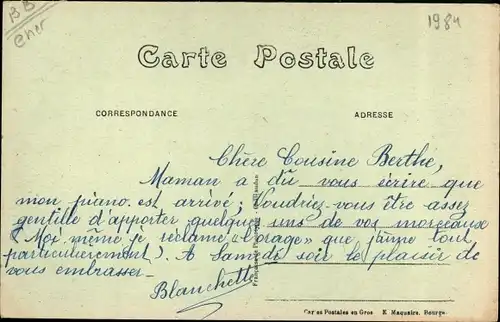 BB
Cher
1984
Carte Postale
CORRESPONDANCE
ADRESSE
Chère Cousine Berthe,
Maman a dû vous écrire que
mon piano est arrivé; Voudriez-vous être assez
gentille d'apporter quelques uns de vos morceaux
(Moi même je réclame "l'orage" que j'aime tout
particulièrement). A Samedi soir le plaisir de
vous embrasser.
Blanchette
Cartes Postales en Gros E. Maquaire, Bourges